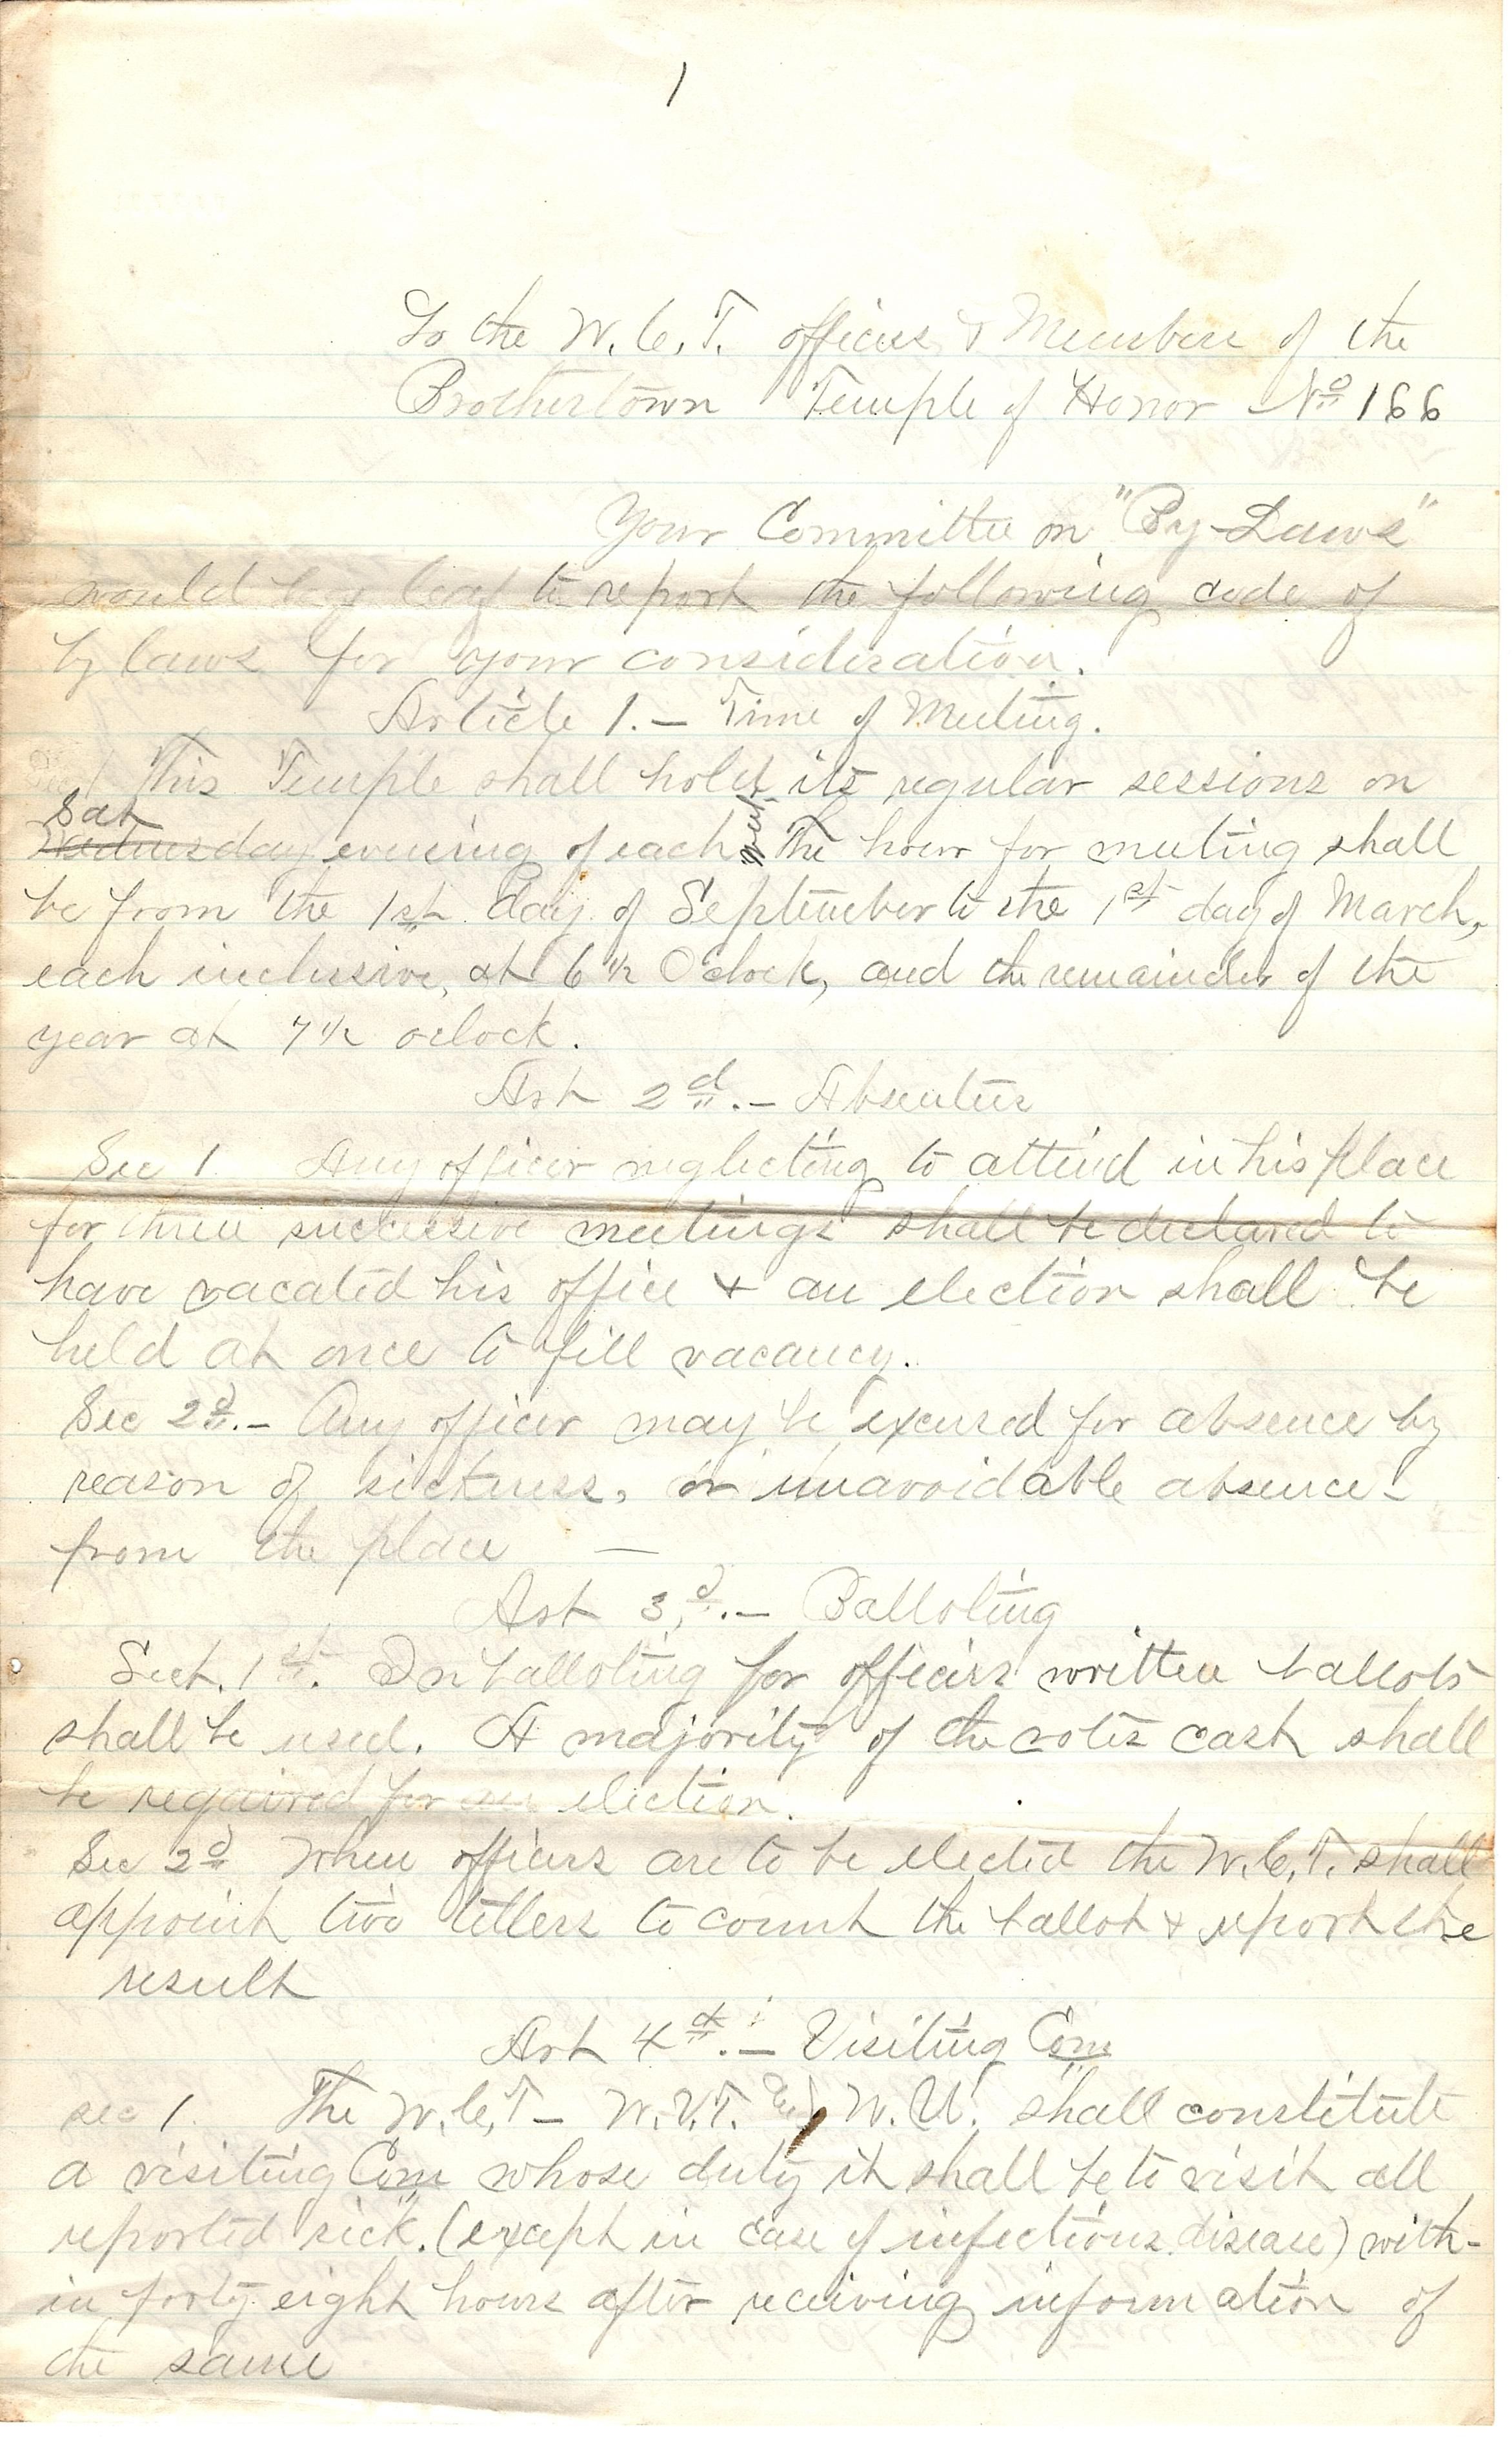 1
To the W.C.T. officers & Members of the
Brothertown Temple of Honor No 166
Your Committee on "By-Laws"
would beg leaf to report the following code of
by laws for your consideration.
Article 1. — Time of Meeting.
This Temple shall hold its regular sessions on
Sat
Wednesday evening of each week. The hour for meeting shall
be from the 1st. day of September to the 1st day of March,
each inclusive, at 6 1/2 O'clock, and the remainder of the
year at 7 1/2 oclock.
Art 2d. — Absentees
Sec 1. Any officer neglecting to attend in his place
for three successive meetings shall be declared to
have vacated his office & an election shall be
held at once to fill vacancy.
Sec 2d. — Any officer may be excused for absence by
reason of sickness, or unavoidable absence -
from the place —
Art 3,d. — Balloting
Sect. 1st. In balloting for officers written ballots
shall be used. A majority of the votes cast shall
be required for an election.
Sec 2d When officers are to be elected the W.C.T. shall
appoint two tellers to count the ballot & report the
result
Art 4th. — Visiting Com
sec 1. The W.C.T — W.V.T. and W.U. shall constitute
a visiting Com whose duty it shall be to visit all
reported sick. (except in case of infectious disease) with-
in forty eight hours after receiving information of
the same